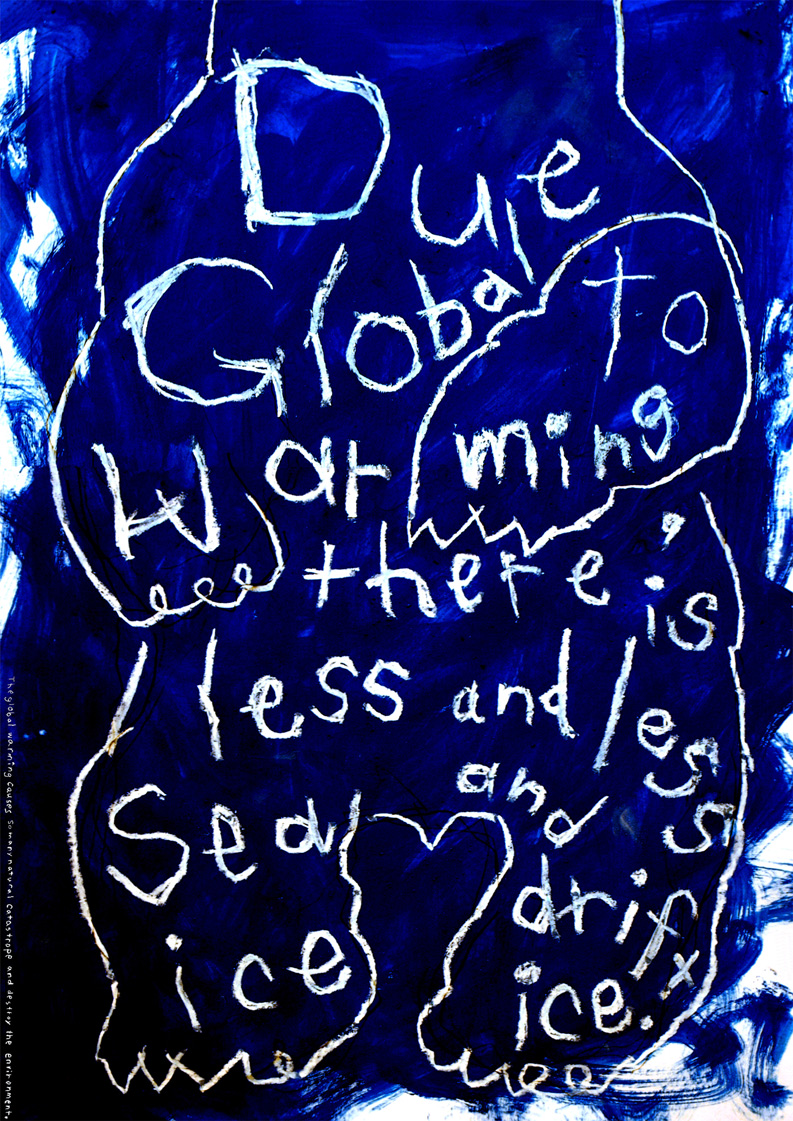 Due to
Global
Warming
there's
less and less
Sea
ice
and
drift
ice.
The global warming causes so many natural catastrope and destroy the environment.